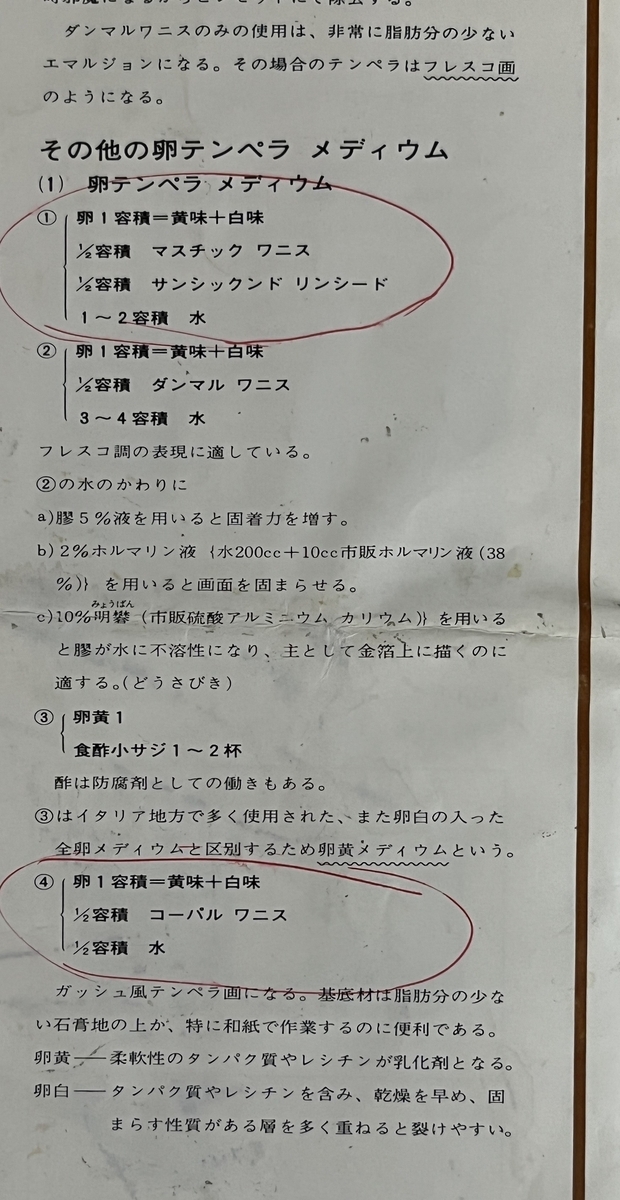 ダンマルワニスのみの使用は、非常に脂肪分の少ない
エマルジョンになる。その場合のテンペラはフレスコ画
のようになる。
その他の卵テンペラ メディウム
(1) 卵テンペラ メディウム
① 卵1容積＝黄味＋白味
½容積 マスチック ワニス
½容積 サンシックンド リンシード
1～2容積 水
② 卵1容積＝黄味＋白味
½容積 ダンマル ワニス
3～4容積 水
フレスコ調の表現に適している。
②の水のかわりに
a)膠5％液を用いると固着力を増す。
b)2％ホルマリン液｛水200cc＋10cc市販ホルマリン液(38
％)｝を用いると画面を固まらせる。
みょうばん
c)10％明礬(市販硫酸アルミニウム カリウム)｝を用いる
と膠が水に不溶性になり、主として金箔上に描くのに
適する。(どうさびき)
③ 卵黄1
食酢小サジ1～2杯
酢は防腐剤としての働きもある。
③はイタリア地方で多く使用された、また卵白の入った
全卵メディウムと区別するため卵黄メディウムという。
④ 卵1容積＝黄味＋白味
½容積 コーパル ワニス
½容積 水
ガッシュ風テンペラ画になる。基底材は脂肪分の少な
い石膏地の上か、特に和紙で作業するのに便利である。
卵黄――柔軟性のタンパク質やレシチンが乳化剤となる。
卵白――タンパク質やレシチンを含み、乾燥を早め、固
まらす性質がある層を多く重ねると裂けやすい。